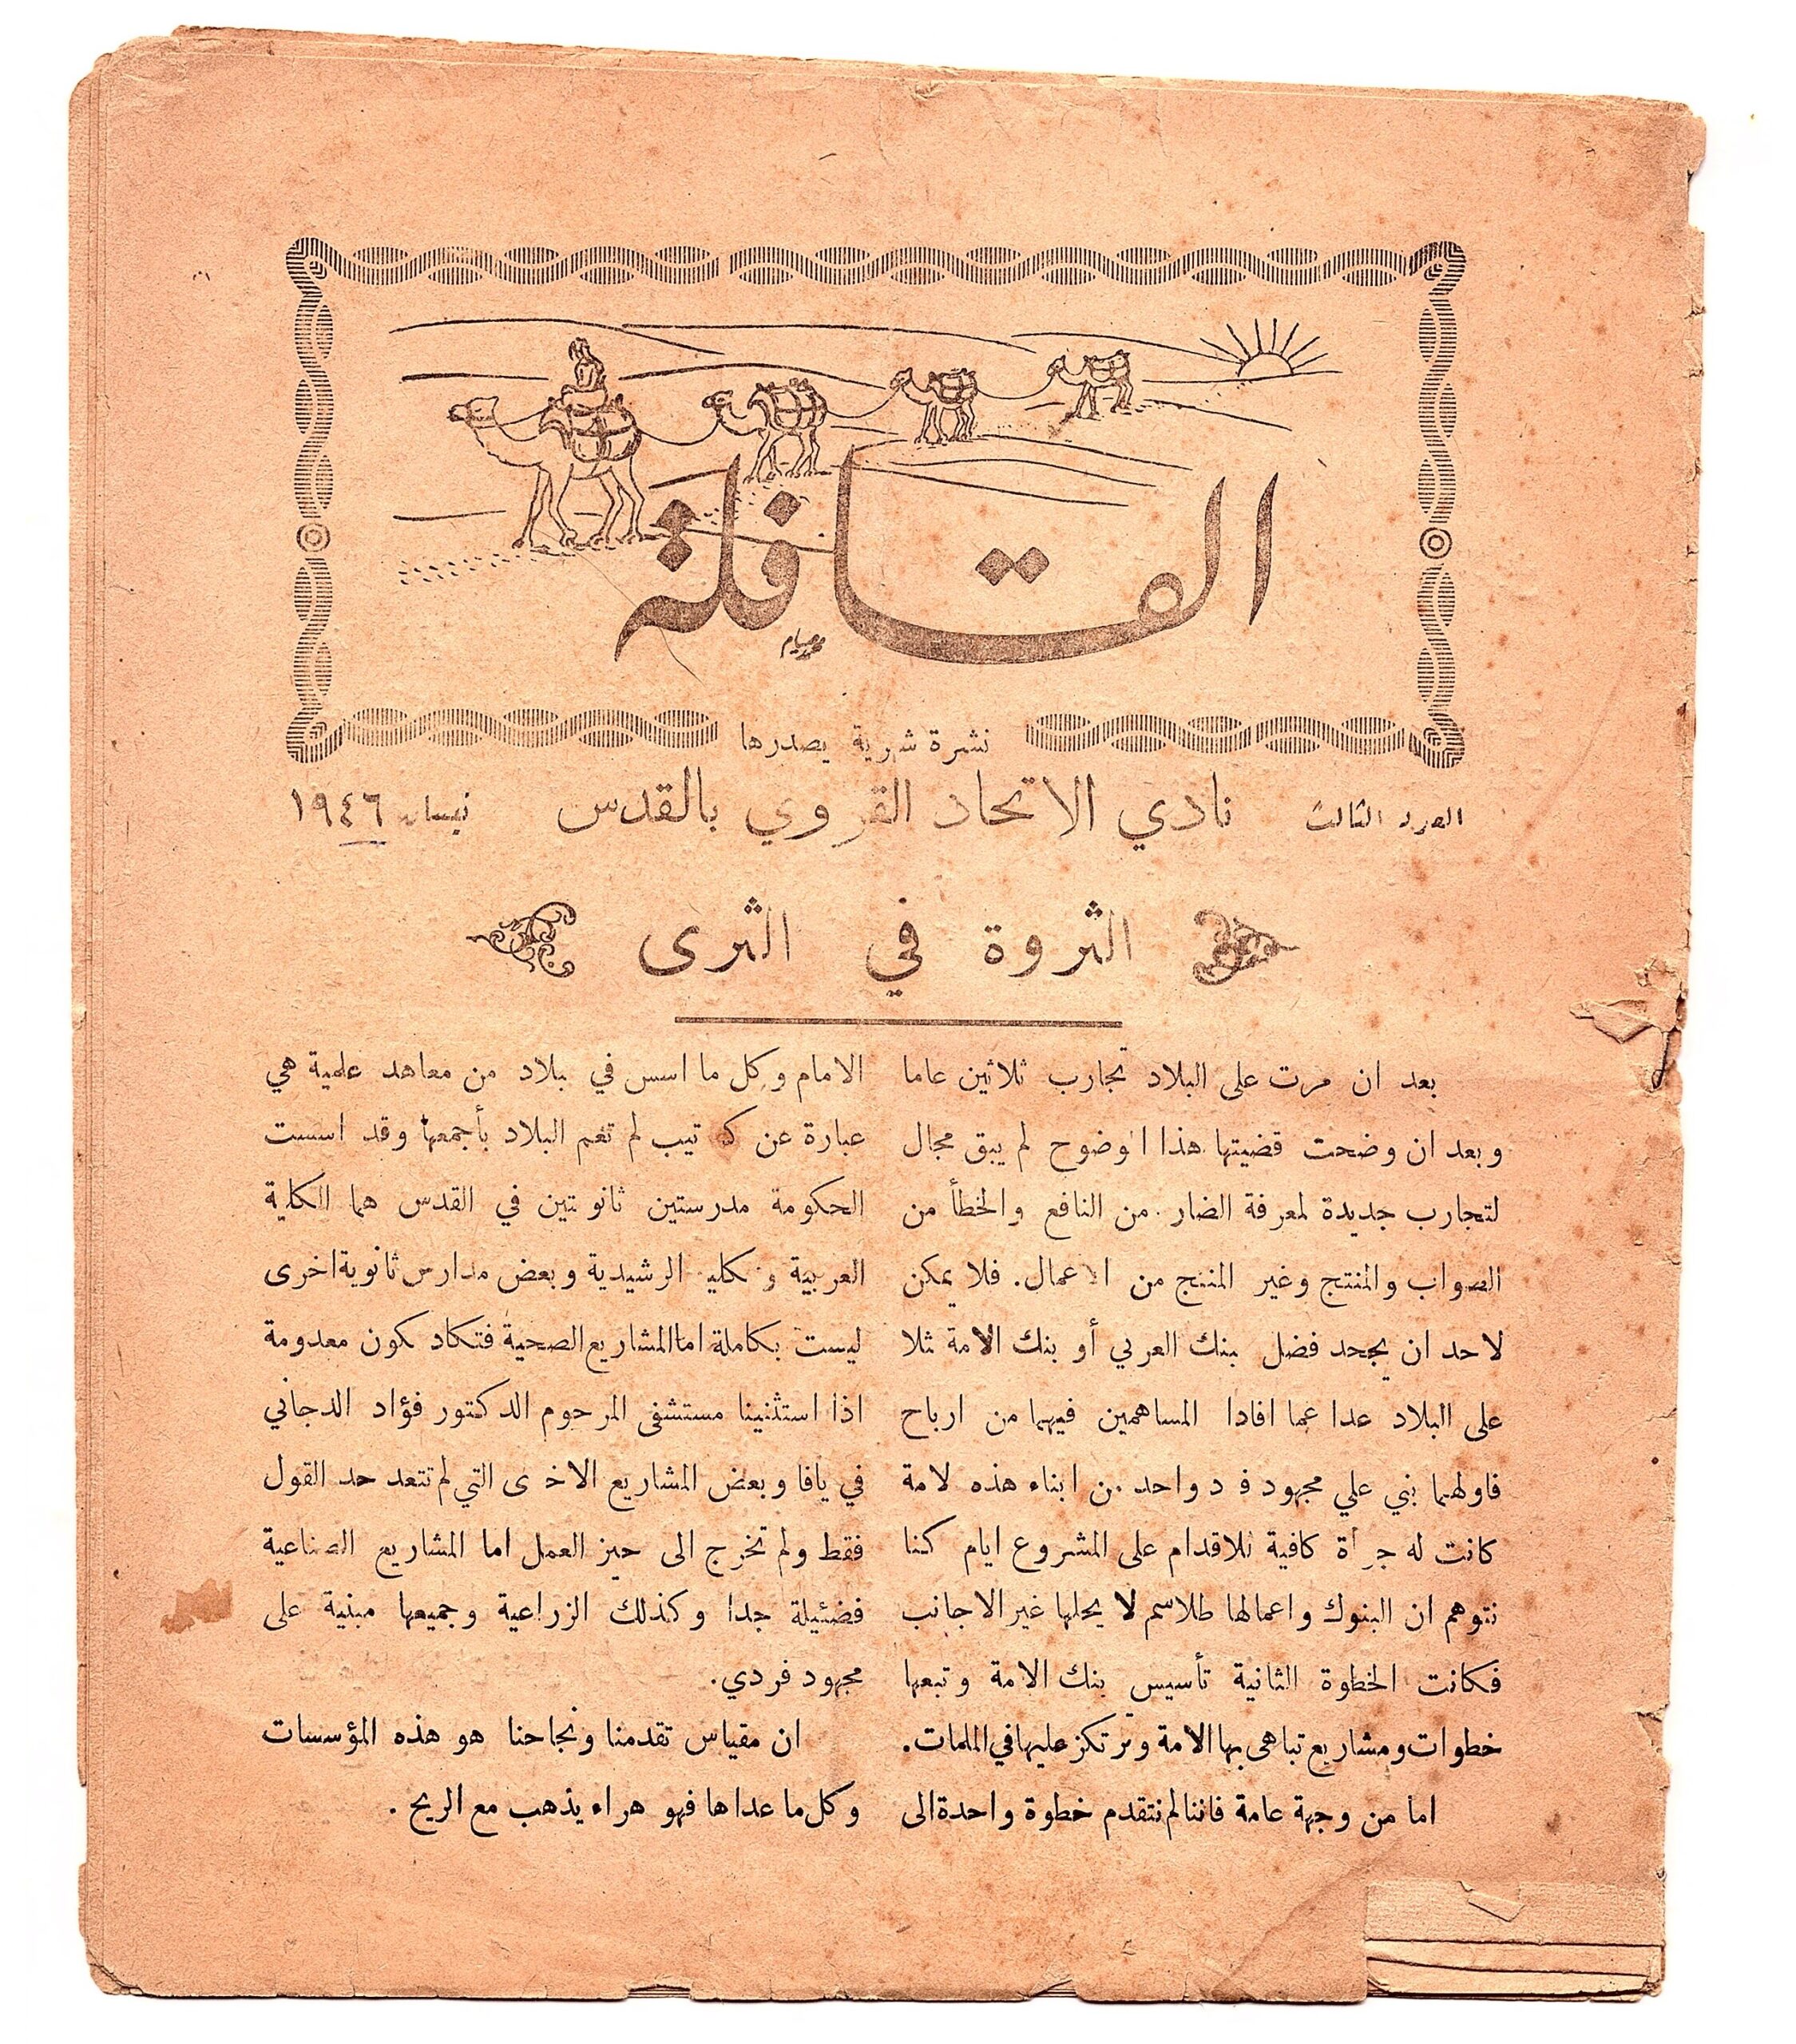 القافلة
نشرة شهرية يصدرها
العدد الثالث
نادي الاتحاد القروي بالقدس
نيسان ١٩٤٦
الثروة في الثرى
بعد ان مرت على البلاد تجارب ثلاثين عاما
وبعد ان وضحت قضيتها هذا الوضوح لم يبق مجال
لتجارب جديدة لمعرفة الضار من النافع والخطأ من
الصواب والمنتج وغير المنتج من الاعمال. فلا يمكن
لاحد ان يجحد فضل بنك العربي أو بنك الامة ثلا
على البلاد عدا عما افادا المساهمين فيهما من ارباح
فاولهما بني علي مجهود فرد واحد من ابناء هذه لامة
كانت له جرأة كافية للاقدام على المشروع ايام كنا
نتوهم ان البنوك واعمالها طلاسم لا يحلها غير الاجانب
فكانت الخطوة الثانية تأسيس بنك الامة وتبعها
خطوات ومشاريع تباهى بها الامة وترتكز عليها في الملمات.
اما من وجهة عامة فاننا لم نتقدم خطوة واحدة الى
الامام وكل ما اسس في بلاد من معاهد علمية هي
عبارة عن كتاتيب لم تعم البلاد بأجمعها وقد اسست
الحكومة مدرستين ثانويتين في القدس هما الكلية
العربية والكلية الرشيدية وبعض مدارس ثانوية اخرى
ليست بكاملة اما المشاريع الصحية فتكاد كون معدومة
اذا استثنينا مستشفى المرحوم الدكتور فؤاد الدجاني
في يافا وبعض المشاريع الاخرى التي لم تتعد حد القول
فقط ولم تخرج الى حيز العمل اما المشاريع الصناعية
فضئيلة جدا وكذلك الزراعية وجميعها مبنية على
مجهود فردي.
ان مقياس تقدمنا ونجاحنا هو هذه المؤسسات
وكل ما عداها فهو هراء يذهب مع الريح.